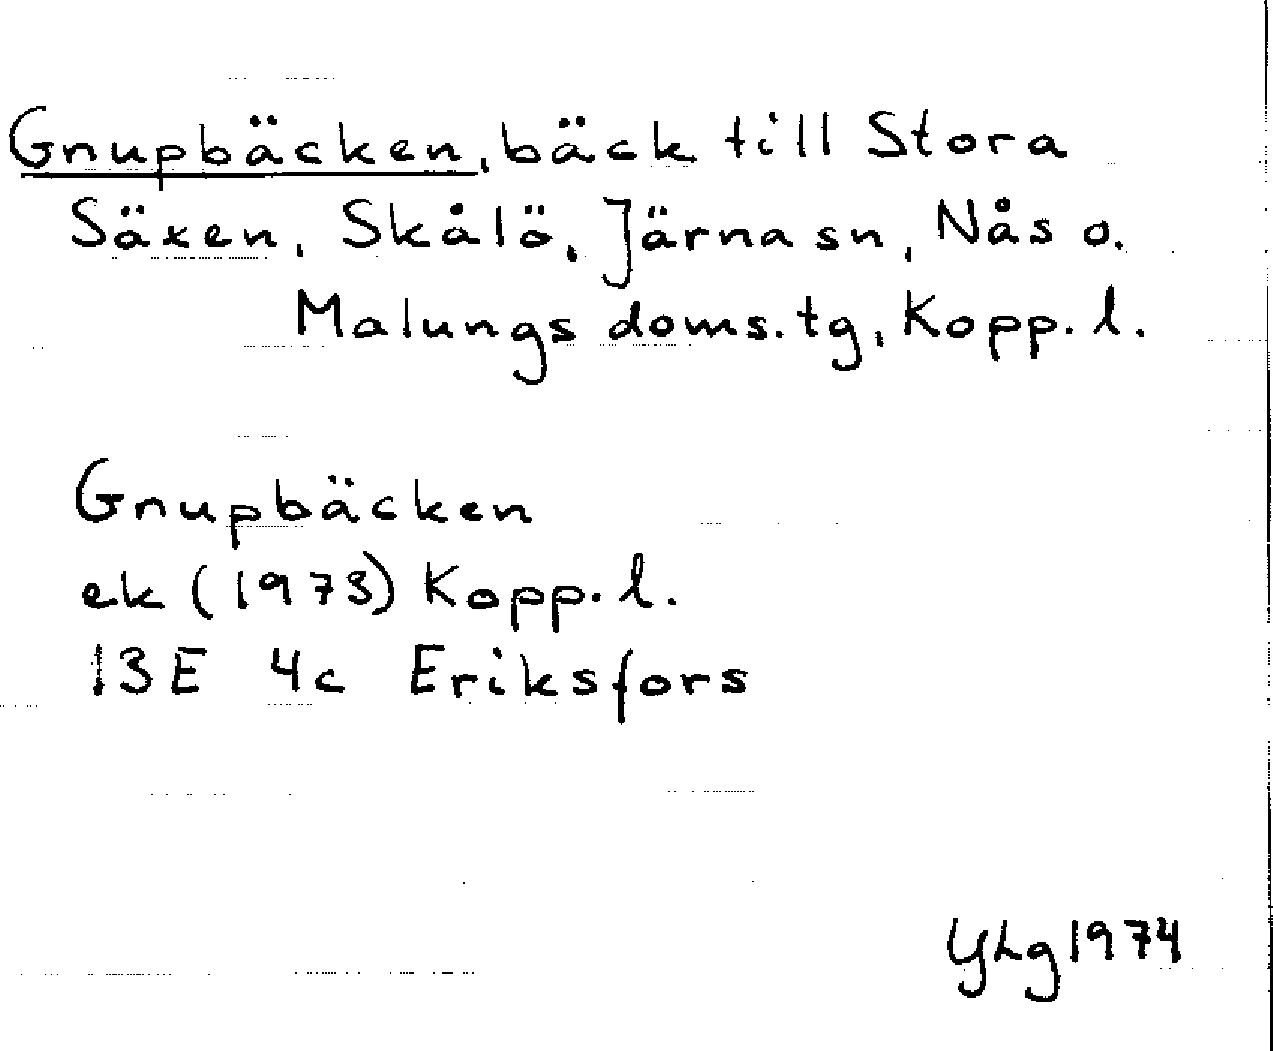 Gnupbäcken, bäck till Stora
Säxen, Skålö, Järna sn, Nås o.
Malungs doms.tg, Kopp. l.
Gnupbäcken
ek (1973) Kopp. l.
13E 4c Eriksfors
YLg 1974